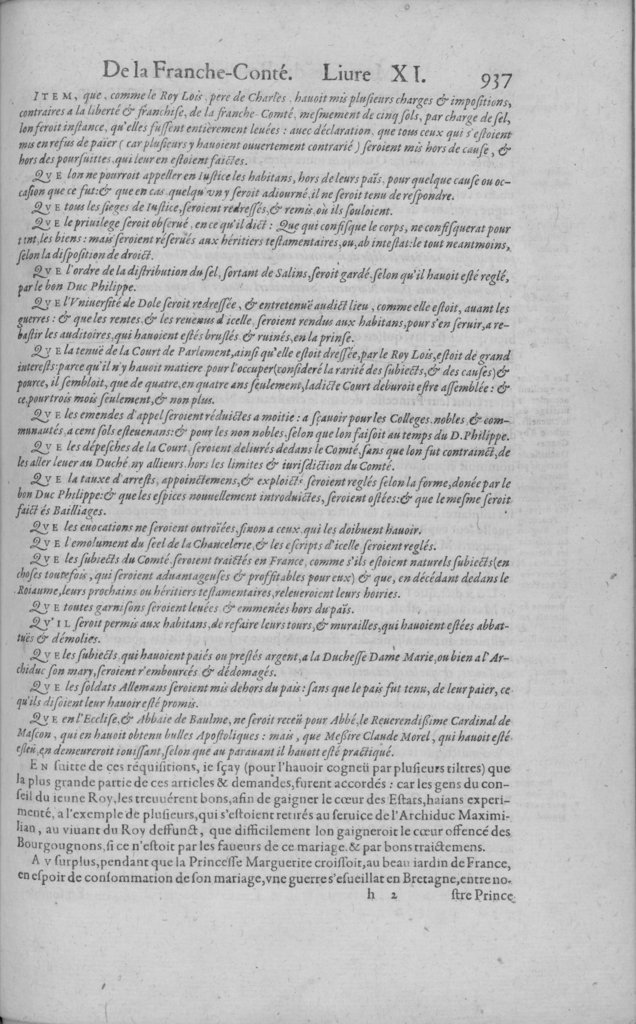 De la Franche-Conté. Liure XI. 937
ITEM, que, comme le Roy Lois, pere de Charles, hauoit mis plusieurs charges & impositions,
contraires a la liberté & franchise, de la franche Comté, mesmement de cinq sols, par charge de sel,
lon feroit instance, qu'elles fussent entièrement leuées: auec déclaration, que tous ceux qui s'estoient
mis en refus de paier (car plusieurs y hauoient ouuertement contrarié) seroient mis hors de cause, &
hors des poursuittes, qui leur en estoient faictes.
QVE lon ne pourroit appeller en Iustice les habitans, hors de leurs païs, pour quelque cause ou oc-
casion que ce fut: & que en cas, quelqu'vn y seroit adiourné, il ne seroit tenu de respondre.
QVE tous les sieges de Iustice, seroient redressés, & remis, où ils souloient.
QVE le priuilege seroit obserué, en ce qu'il dict: Que qui confisque le corps, ne confisquerat pour
tant, les biens: mais seroient réserués aux héritiers testamentaires, ou, ab intestat: le tout neantmoins,
selon la disposition de droict.
QVE l'ordre de la distribution du sel, sortant de Salins, seroit gardé, selon qu'il hauoit esté reglé,
par le bon Duc Philippe.
QVE l'Vniuersité de Dole seroit redressée, & entretenuë audict lieu, comme elle estoit, auant les
guerres: & que les rentes, & les reuenus d'icelle, seroient rendus aux habitans, pour s'en seruir, a re-
bastir les auditoires, qui hauoient estés bruslés & ruinés, en la prinse.
QVE la tenuë de la Court de Parlement, ainsi qu'elle estoit dressée, par le Roy Lois, estoit de grand
interests: parce qu'il n'y hauoit matiere pour l'occuper (consideré la rarité des subiects, & des causes) &
pource, il sembloit, que de quatre, en quatre ans seulement, ladicte Court deburoit estre assemblée: &
ce, pour trois mois seulement, & non plus.
QVE les emendes d'appel seroient réduictes a moitie: a sçauoir pour les Colleges, nobles, & com-
munautés, a cent sols estevenans: & pour les non nobles, selon que lon faisoit au temps du D. Philippe.
QVE les dépesches de la Court, seroient deliurés dedans le Comté, sans que lon fut contrainct, de
les aller leuer au Duché, ny allieurs, hors les limites & iurisdiction du Comté.
QVE la tauxe d'arrests, appoinctemens, & exploicts seroient reglés selon la forme, donée par le
bon Duc Philippe: & que les espices nouuellement introduictes, seroient ostées: & que le mesme seroit
faict és Bailliages.
QVE les euocations ne seroient outroiées, sinon a ceux, qui les doibuent hauoir.
QVE l'emolument du seel de la Chancelerie, & les escripts d'icelle seroient reglés.
QVE les subiects du Comté, seroient traictés en France, comme s'ils estoient naturels subiects (en
choses toutefois, qui seroient aduantageuses & proffitables pour eux) & que, en décédant dedans le
Roiaume, leurs prochains ou héritiers testamentaires, releueroient leurs hoiries.
QVE toutes garnisons seroient leuées & emmenées hors du païs.
QV'IL seroit permis aux habitans, de refaire leurs tours, & murailles, qui hauoient estées abbat-
tuës & démolies.
QVE les subiects, qui hauoient paiés ou prestés argent, a la Duchesse Dame Marie, ou bien a l'Ar-
chiduc son mary, seroient r'embourcés & dédomagés.
QVE les soldats Allemans seroient mis dehors du pais: sans que le pais fut tenu, de leur paier, ce
qu'ils disoient leur hauoir esté promis.
QVE en l'Ecclise, & Abbaie de Baulme, ne seroit receü pour Abbé, le Reuerendissime Cardinal de
Mascon, qui en hauoit obtenu bulles Apostoliques: mais, que Messire Claude Morel, qui hauoit esté
esleu, en demeureroit iouissant, selon que au parauant il hauoit esté practiqué.
EN suitte de ces réquisitions, ie sçay (pour l'hauoir cogneü par plusieurs tiltres) que
la plus grande partie de ces articles & demandes, furent accordés: car les gens du con-
seil du ieune Roy, les treuuérent bons, afin de gaigner le cœur des Estats, haians experi-
menté, a l'exemple de plusieurs, qui s'estoient retirés au seruice de l'Archiduc Maximi-
lian, au viuant du Roy deffunct, que difficilement lon gaigneroit le cœur offencé des
Bourgougnons, si ce n'estoit par les faueurs de ce mariage, & par bons traictemens.
AV surplus, pendant que la Princesse Marguerite croissoit, au beau iardin de France,
en espoir de consommation de son mariage, vne guerre s'esueillat en Bretagne, entre no-
h 2 stre Prince